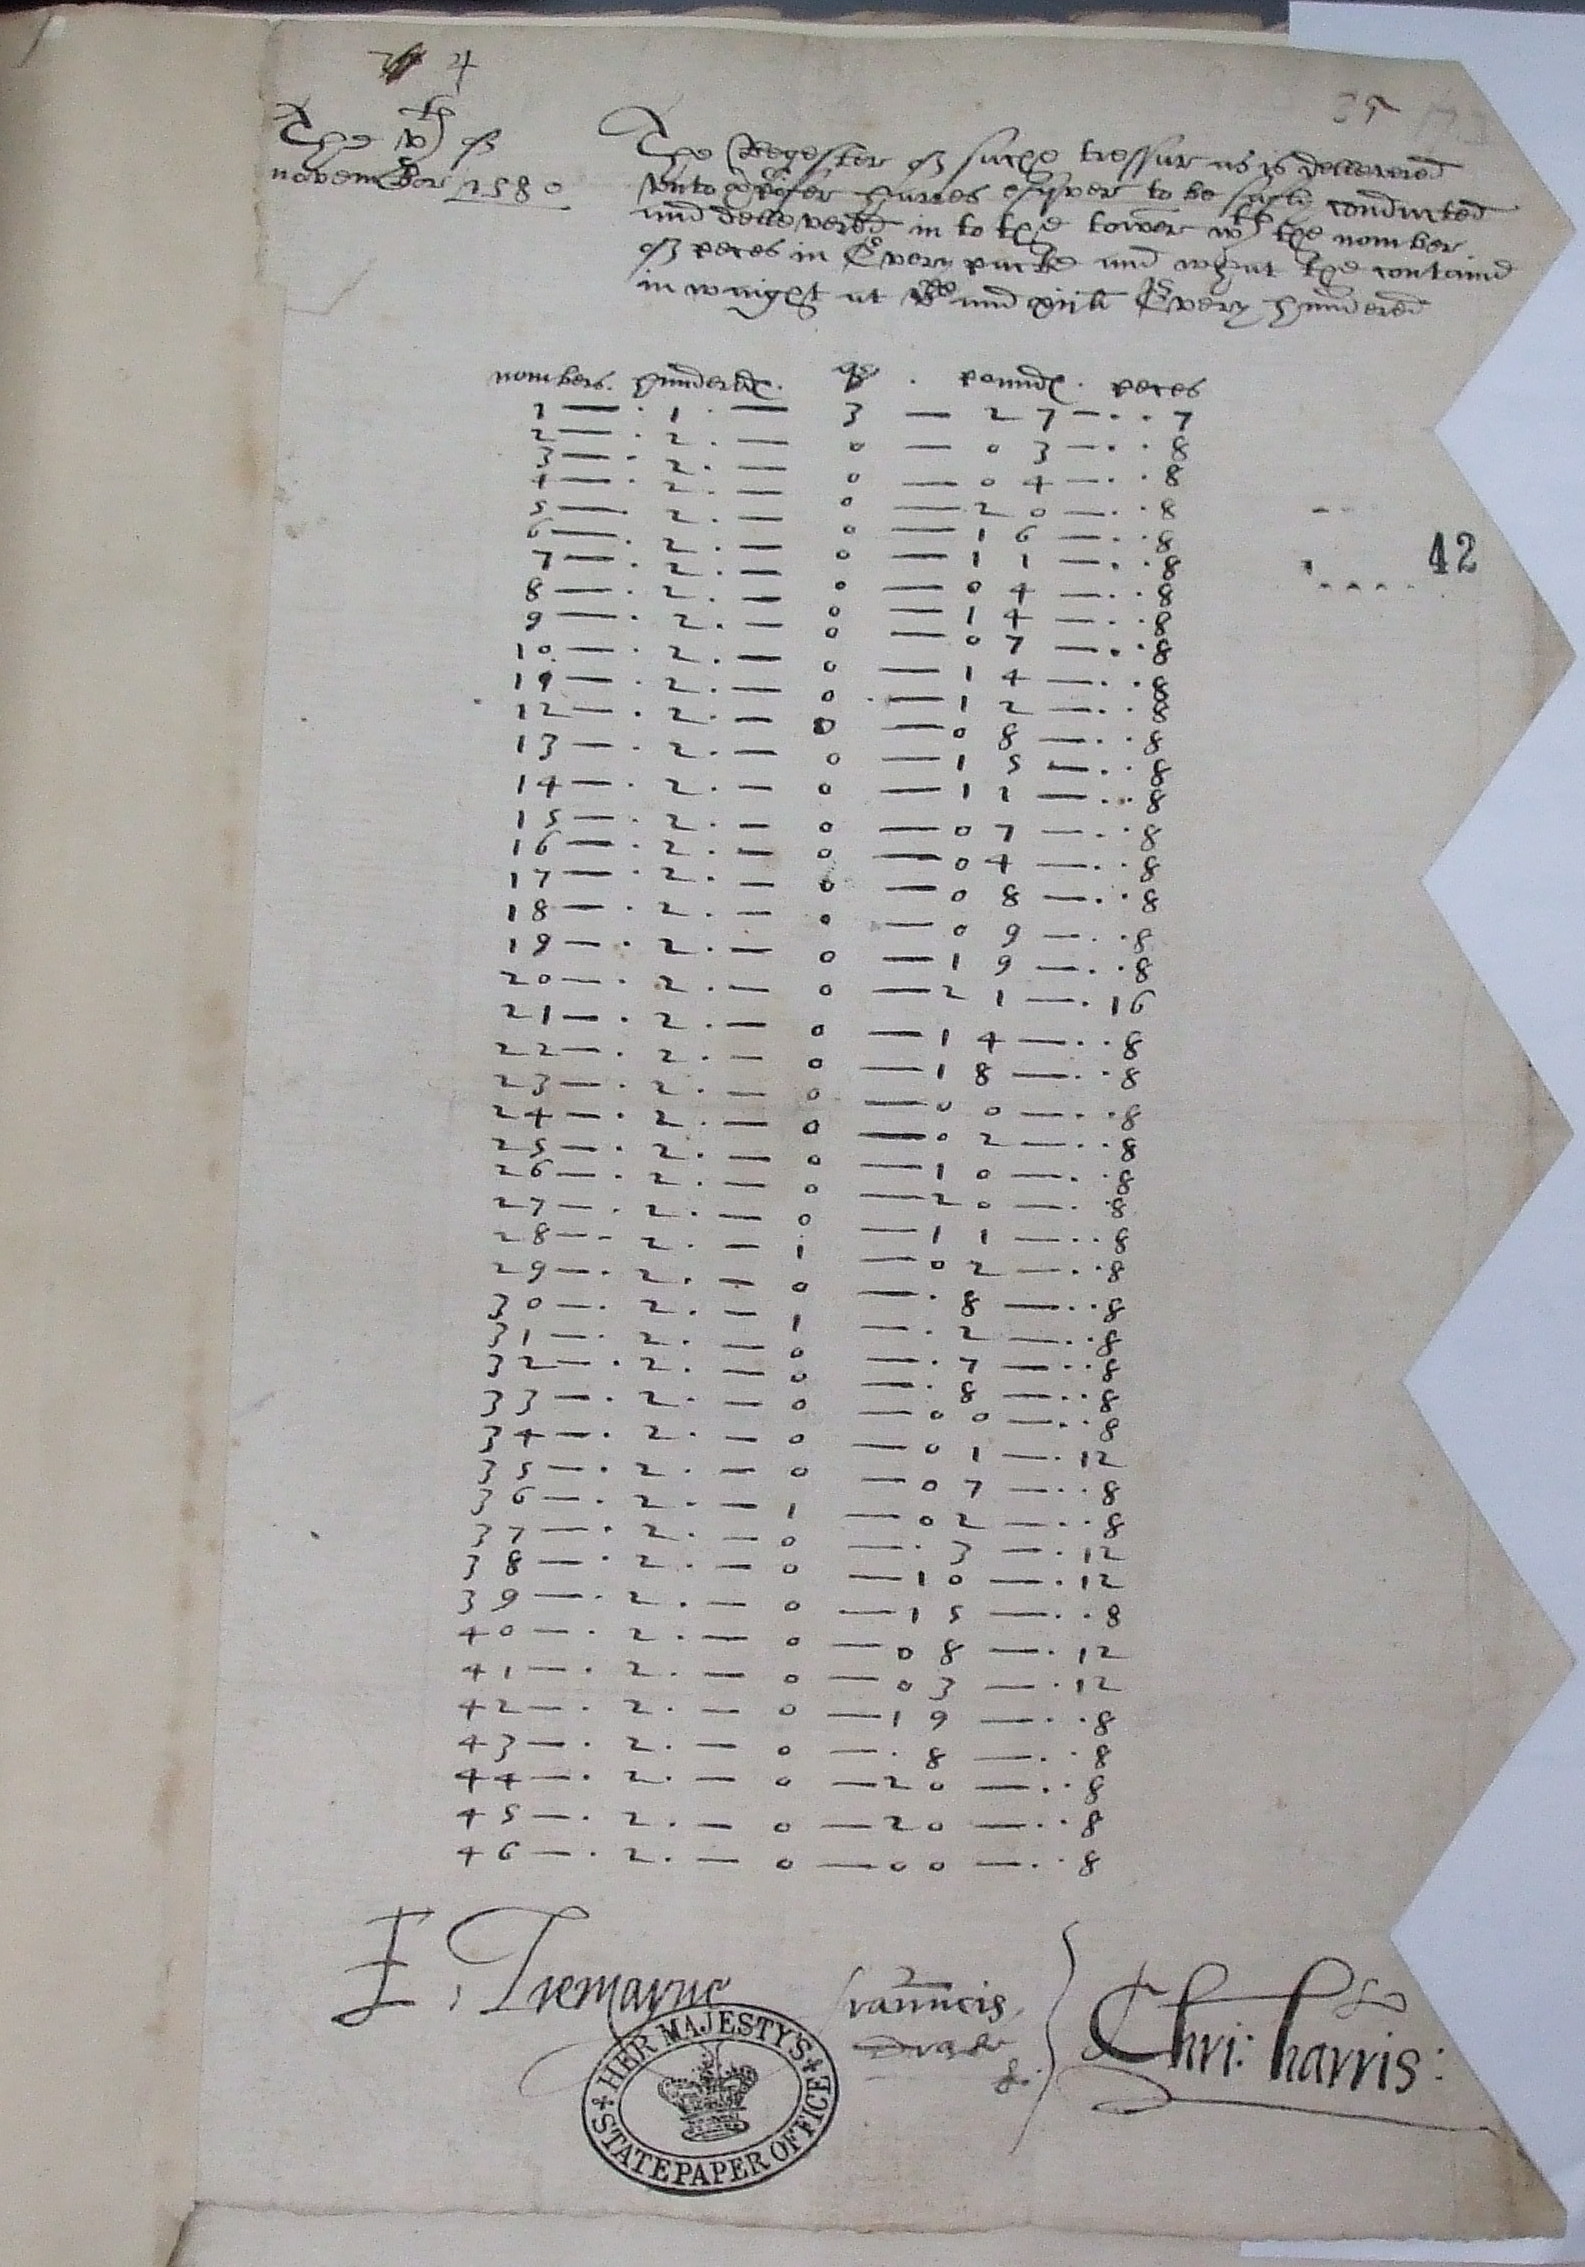 4
The vth of
november 1580
The Regester of suche tressur as is dellevered
unto Christofer harres esquyer to be safly conducted
and dellevered in to the tower wth the nomber
of peces in Every packe and what the contained
in waight at and Every hundered
nombers. hunderds. qrs. pounds. peces
1 — . 1 . — 3 — 2 7 — . . 7
2 — . 2 . — 0 — 0 3 — . . 8
3 — . 2 . — 0 — 0 4 — . . 8
4 — . 2 . — 0 — 2 0 — . . 8
5 — . 2 . — 0 — 1 6 — . . 8
6 — . 2 . — 0 — 1 1 — . . 8
7 — . 2 . — 0 — 0 4 — . . 8
8 — . 2 . — 0 — 1 4 — . . 8
9 — . 2 . — 0 — 0 7 — . . 8
10 — . 2 . — 0 — 1 4 — . . 8
11 — . 2 . — 0 — 1 2 — . . 8
12 — . 2 . — 0 — 0 8 — . . 8
13 — . 2 . — 0 — 1 5 — . . 8
14 — . 2 . — 0 — 1 1 — . . 8
15 — . 2 . — 0 — 0 7 — . . 8
16 — . 2 . — 0 — 0 4 — . . 8
17 — . 2 . — 0 — 0 8 — . . 8
18 — . 2 . — 0 — 0 9 — . . 8
19 — . 2 . — 0 — 1 9 — . . 8
20 — . 2 . — 0 — 2 1 — . 16
21 — . 2 . — 0 — 1 4 — . . 8
22 — . 2 . — 0 — 1 8 — . . 8
23 — . 2 . — 0 — 0 0 — . . 8
24 — . 2 . — 0 — 0 2 — . . 8
25 — . 2 . — 0 — 1 0 — . . 8
26 — . 2 . — 0 — 2 0 — . . 8
27 — . 2 . — 0 — 1 1 — . . 8
28 — . 2 . — 1 — 0 2 — . . 8
29 — . 2 . — 0 — . 8 — . . 8
30 — . 2 . — 1 — . 2 — . . 8
31 — . 2 . — 0 — . 7 — . . 8
32 — . 2 . — 0 — . 8 — . . 8
33 — . 2 . — 0 — 0 0 — . . 8
34 — . 2 . — 0 — 0 1 — . 12
35 — . 2 . — 0 — 0 7 — . . 8
36 — . 2 . — 1 — 0 2 — . . 8
37 — . 2 . — 0 — . 3 — . 12
38 — . 2 . — 0 — 1 0 — . 12
39 — . 2 . — 0 — 1 5 — . . 8
40 — . 2 . — 0 — 0 8 — . 12
41 — . 2 . — 0 — 0 3 — . 12
42 — . 2 . — 0 — 1 9 — . . 8
43 — . 2 . — 0 — . 8 — . . 8
44 — . 2 . — 0 — 2 0 — . . 8
45 — . 2 . — 0 — 2 0 — . . 8
46 — . 2 . — 0 — 0 0 — . . 8
42
E. Tremayne
Frauncis
Drake
Chri: harris:
HER MAJESTY'S
STATE PAPER OFFICE